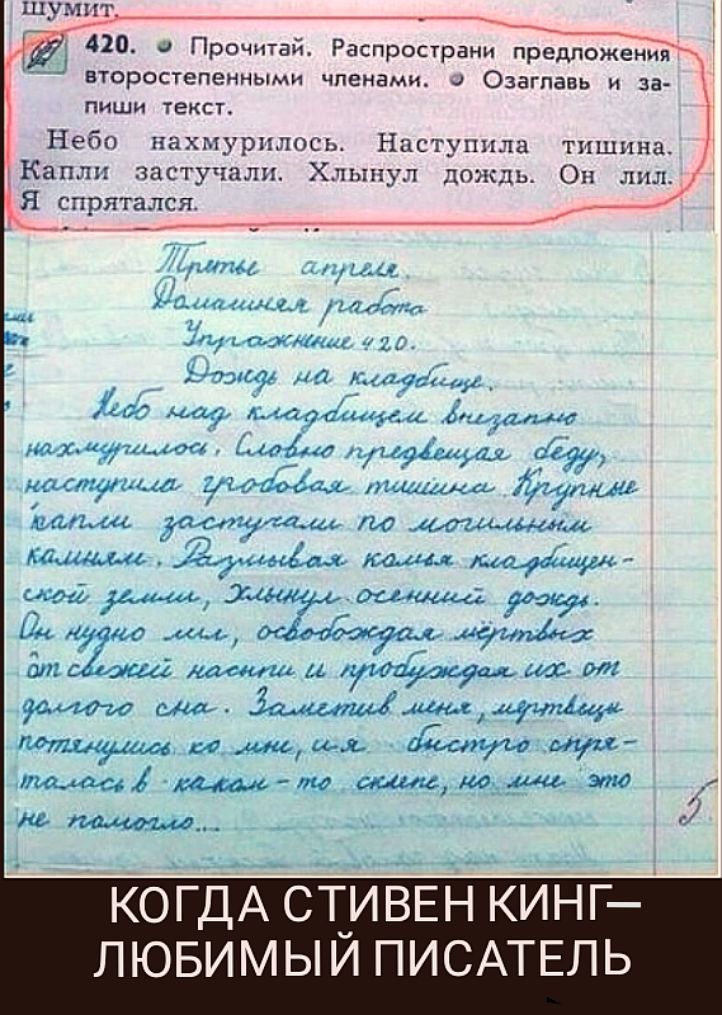 шумит.
420. Прочитай. Распространи предложения
второстепенными членами. Озаглавь и за-
пиши текст.
Небо нахмурилось. Наступила тишина.
Капли застучали. Хлынул дождь. Он лил.
Я спрятался.
Третье апреля.
Домашняя работа
Упражнение 420.
Дождь на кладбище.
Небо над кладбищем внезапно
нахмурилось. Словно предвещая беду,
наступила гробовая тишина. Крупные
капли застучали по могильным
камням. Размывая комья кладбищен-
ской земли, хлынул осенний дождь.
Он нудно лил, освобождая мёртвых
от свежей насыпи и пробуждая их от
долгого сна. Заметив меня, мертвецы
потянулись ко мне, и я быстро спря-
талась в каком-то склепе, но мне это
не помогло...
5
КОГДА СТИВЕН КИНГ–
ЛЮБИМЫЙ ПИСАТЕЛЬ